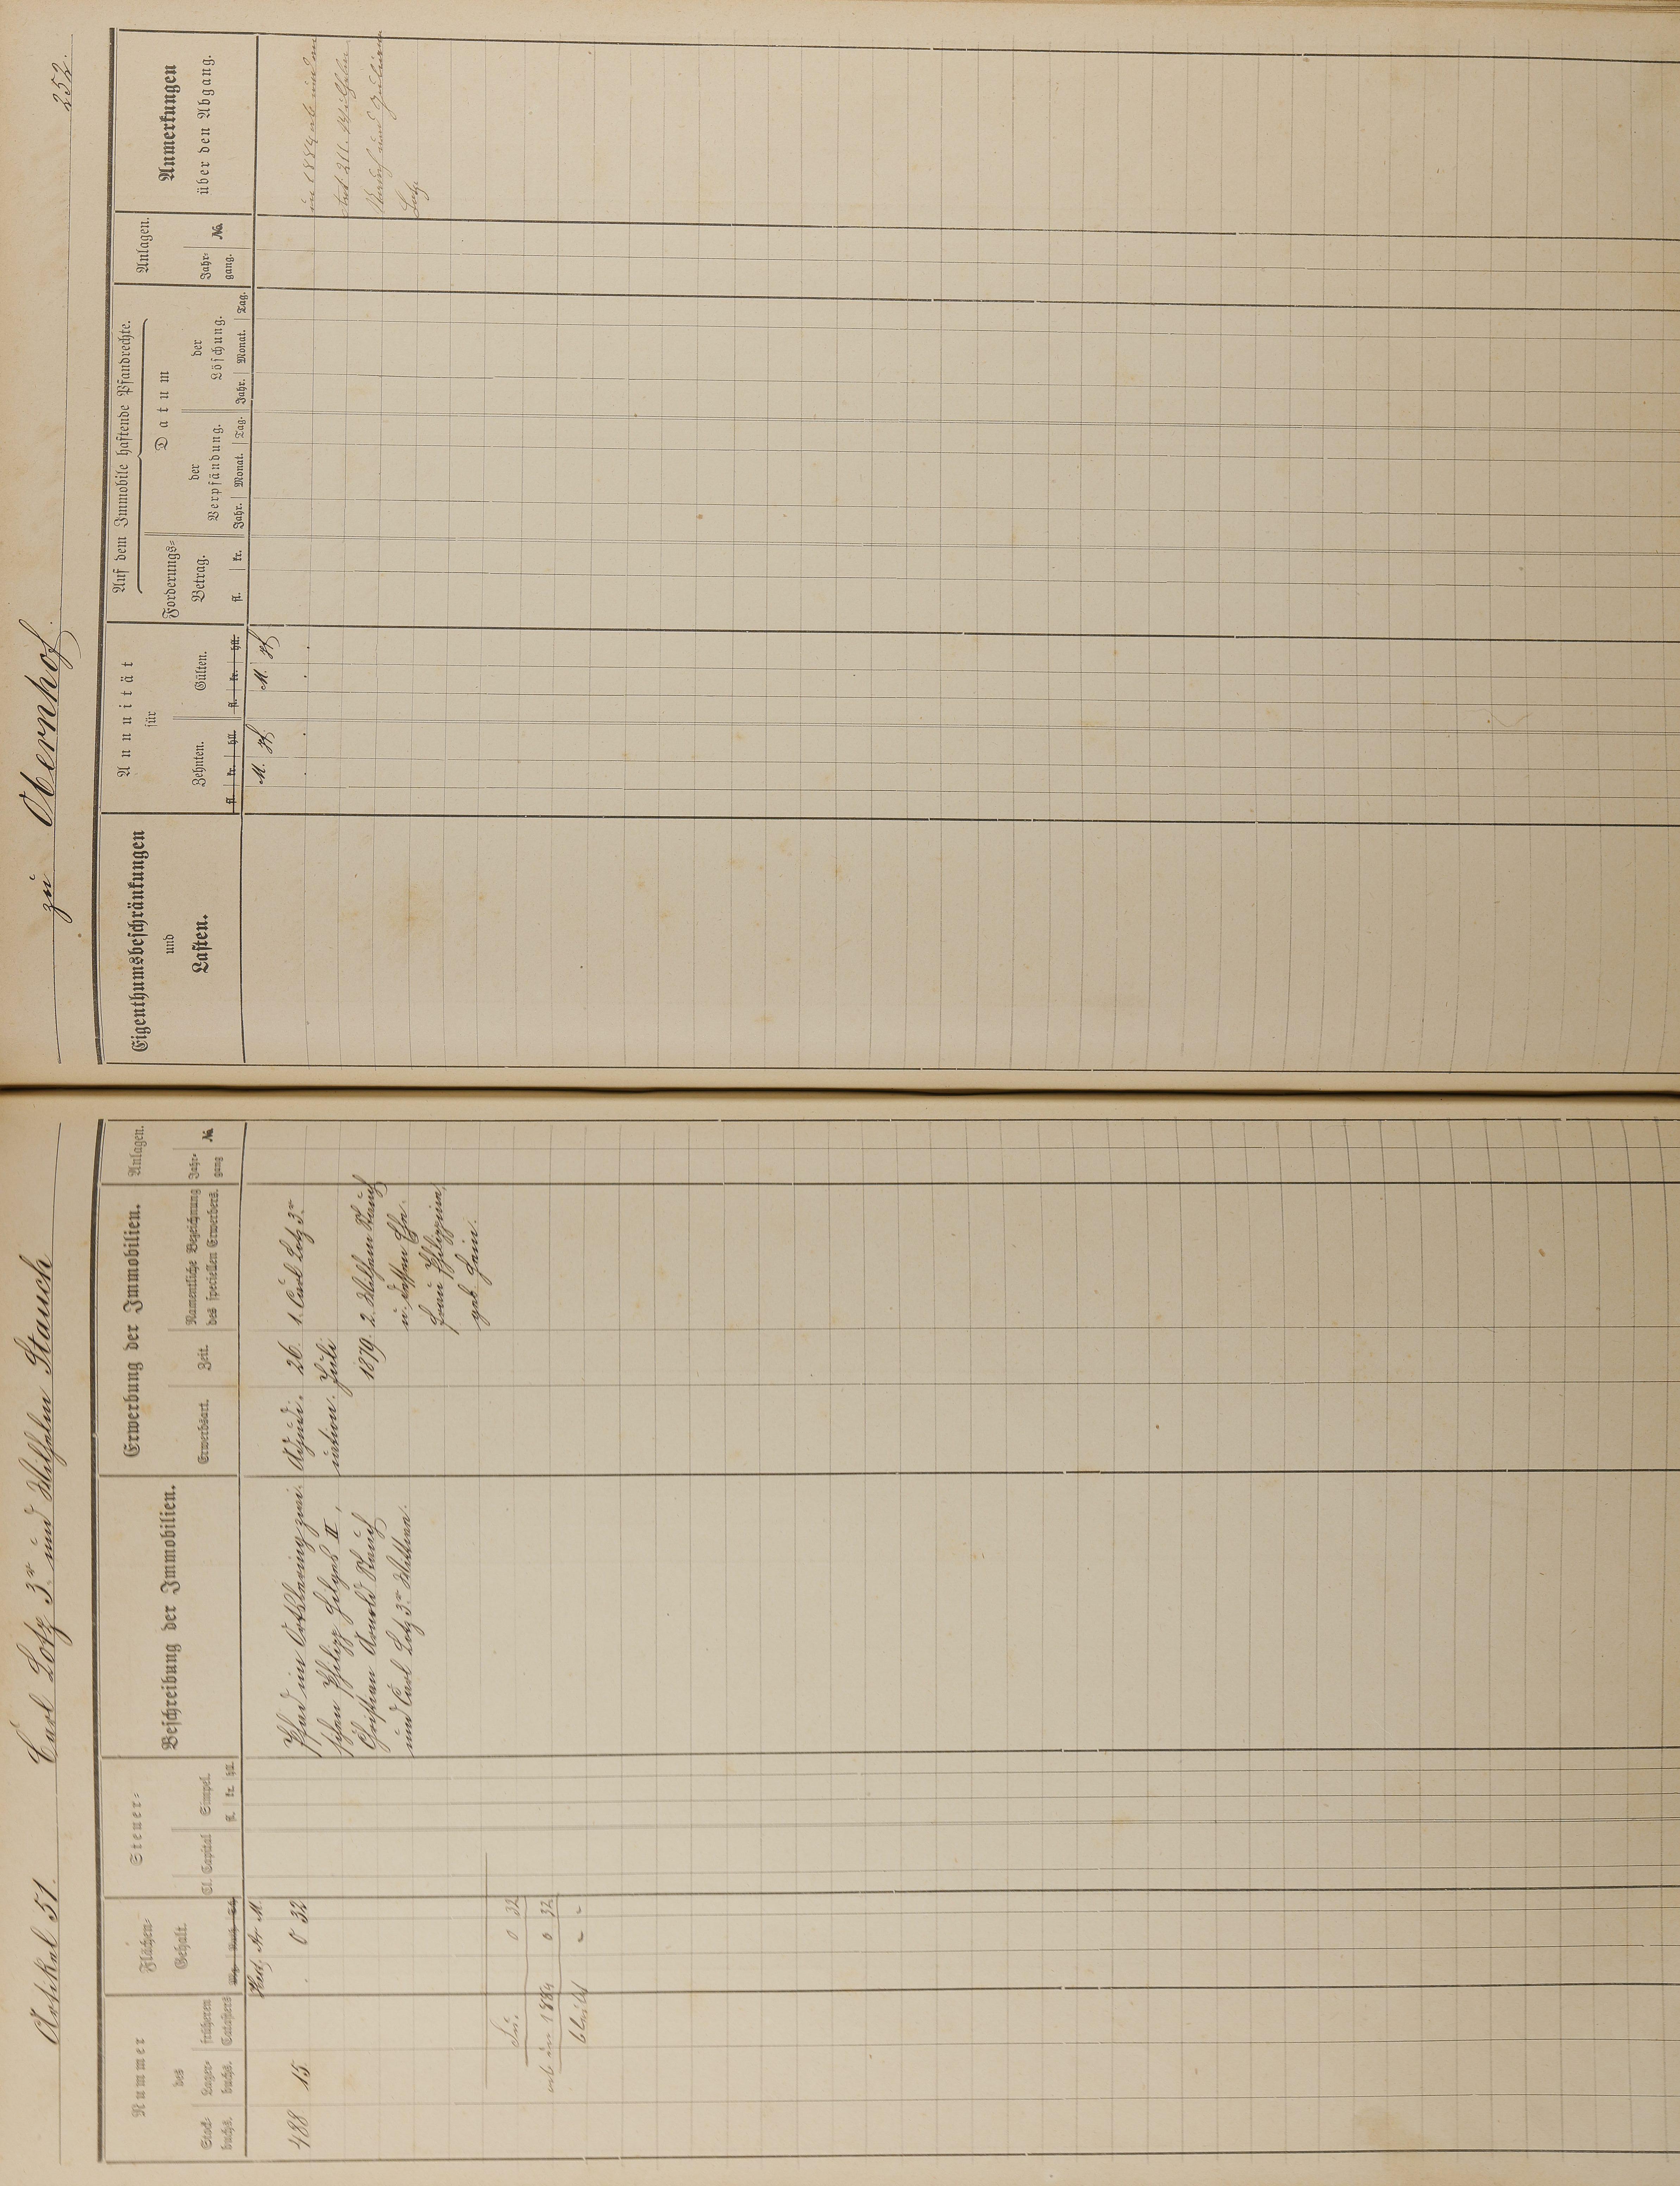 Artikel 51. Carl Lotz 3r und Wilhelm Stauch
Nummer
des
Stock-
buchs.
Lager-
buchs.
früheren
Catasters
Flächen-
Gehalt.
Hect. Ar M.
Steuer-
Cl. Capital
Simpel.
fl. kr. hll.
Beschreibung der Immobilien.
Erwerbung der Immobilien.
Erwerbsart.
Zeit.
Namentliche Bezeichnung
des speciellen Erwerbers.
Anlagen.
Jahr-
gang
№
488 15 0 32
Pfad im Ortsbering zwi-
schen Philipp Hilgas II,
Christian Arnold Stauch
und Carl Lotz 3r Wittwe.
Adjudi-
cation.
26.
Juli
1879.
1. Carl Lotz 3r
2. Wilhelm Stauch
u. dessen Ehe-
frau Philippine,
geb. Hein.
Su. 0 32
ab in 1884 0 32
bleibt " "
zu Obernhof. 252.
Eigenthumsbeschränkungen
und
Lasten.
Annuität
für
Zehnten.
fl. kr. hll.
Gülten.
fl. kr. hll.
M. Pf
M. Pf
Auf dem Immobile haftende Pfandrechte.
Forderungs-
Betrag.
fl. kr.
Datum
der
Verpfändung.
Jahr. Monat. Tag.
der
Löschung.
Jahr. Monat. Tag.
Anlagen.
Jahr-
gang.
№
Anmerkungen
über den Abgang.
in 1884 ab und an
Art 211. Wilhelm
Stauch und
Lotz